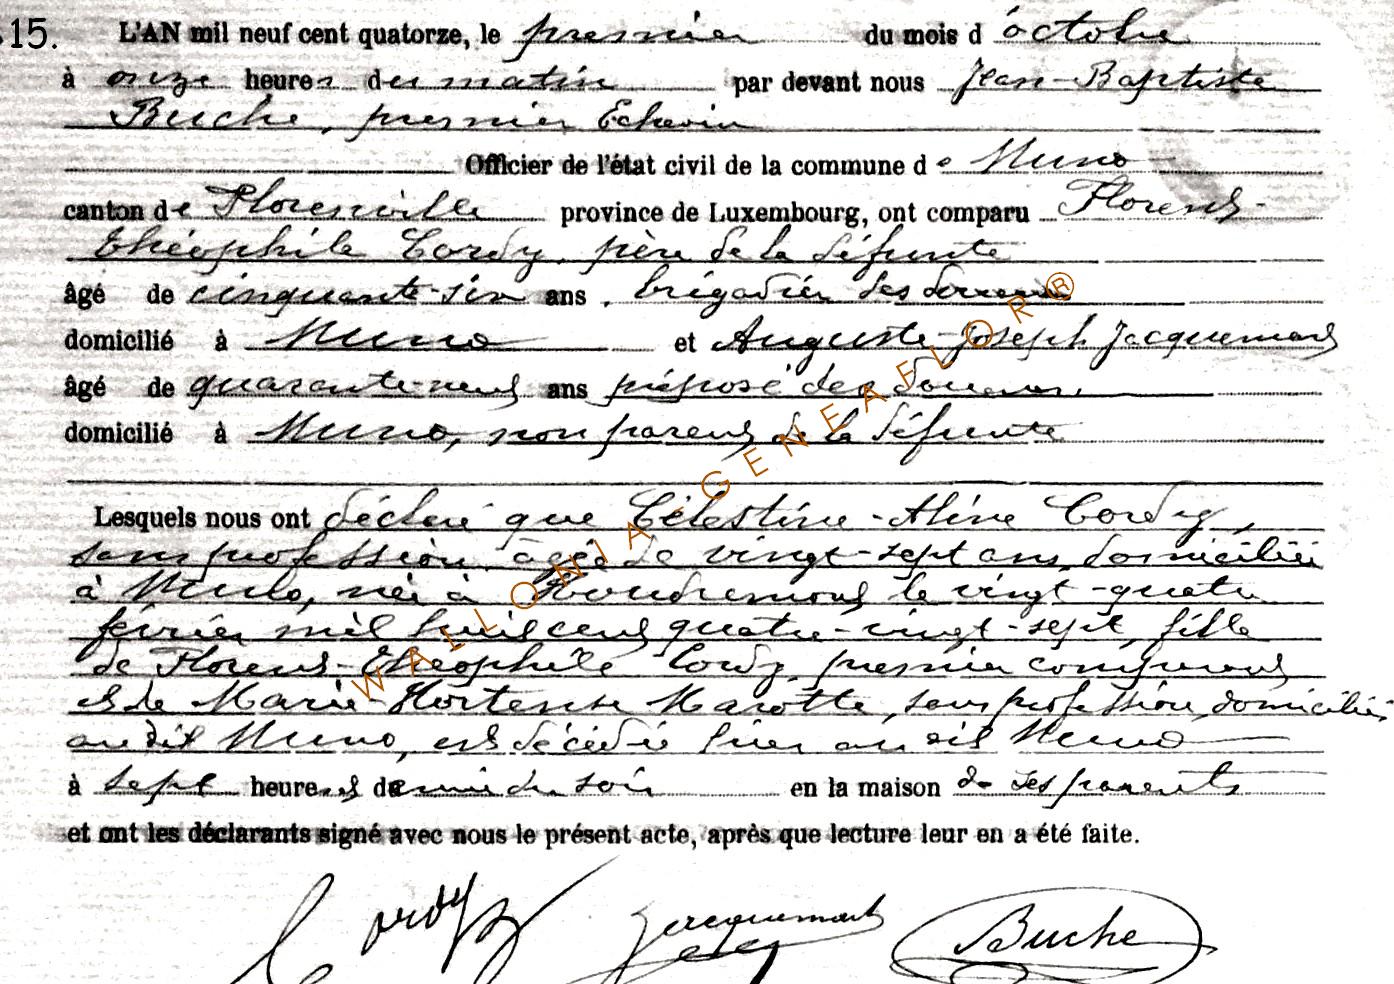 15. L'AN mil neuf cent quatorze, le premier du mois d'octobre
à onze heures du matin par devant nous Jean-Baptiste
Buche, premier Echevin
Officier de l'état civil de la commune de Muno
canton de Florenville province de Luxembourg, ont comparu Florent-
Théophile Cordy, père de la défunte
âgé de cinquante-six ans, brigadier des douanes
domicilié à Muno et Auguste-Joseph Jacquemart
âgé de quarante-neuf ans préposé des douanes,
domicilié à Muno, non parent de la défunte
Lesquels nous ont déclaré que Célestine-Aline Cordy,
sans profession, âgée de vingt-sept ans, domiciliée
à Muno, née à le vingt-quatre
février mil huit cent quatre-vingt-sept, fille
de Florent-Théophile Cordy, premier comparant
et de Marie-Hortense Marotte, sans profession, domiciliée
au dit Muno, est décédée hier au dit Muno
à sept heures et demie du soir en la maison de ses parents
et ont les déclarants signé avec nous le présent acte, après que lecture leur en a été faite.
Cordy Jacquemart Buche
WALLONIA-GENEAFLOR®